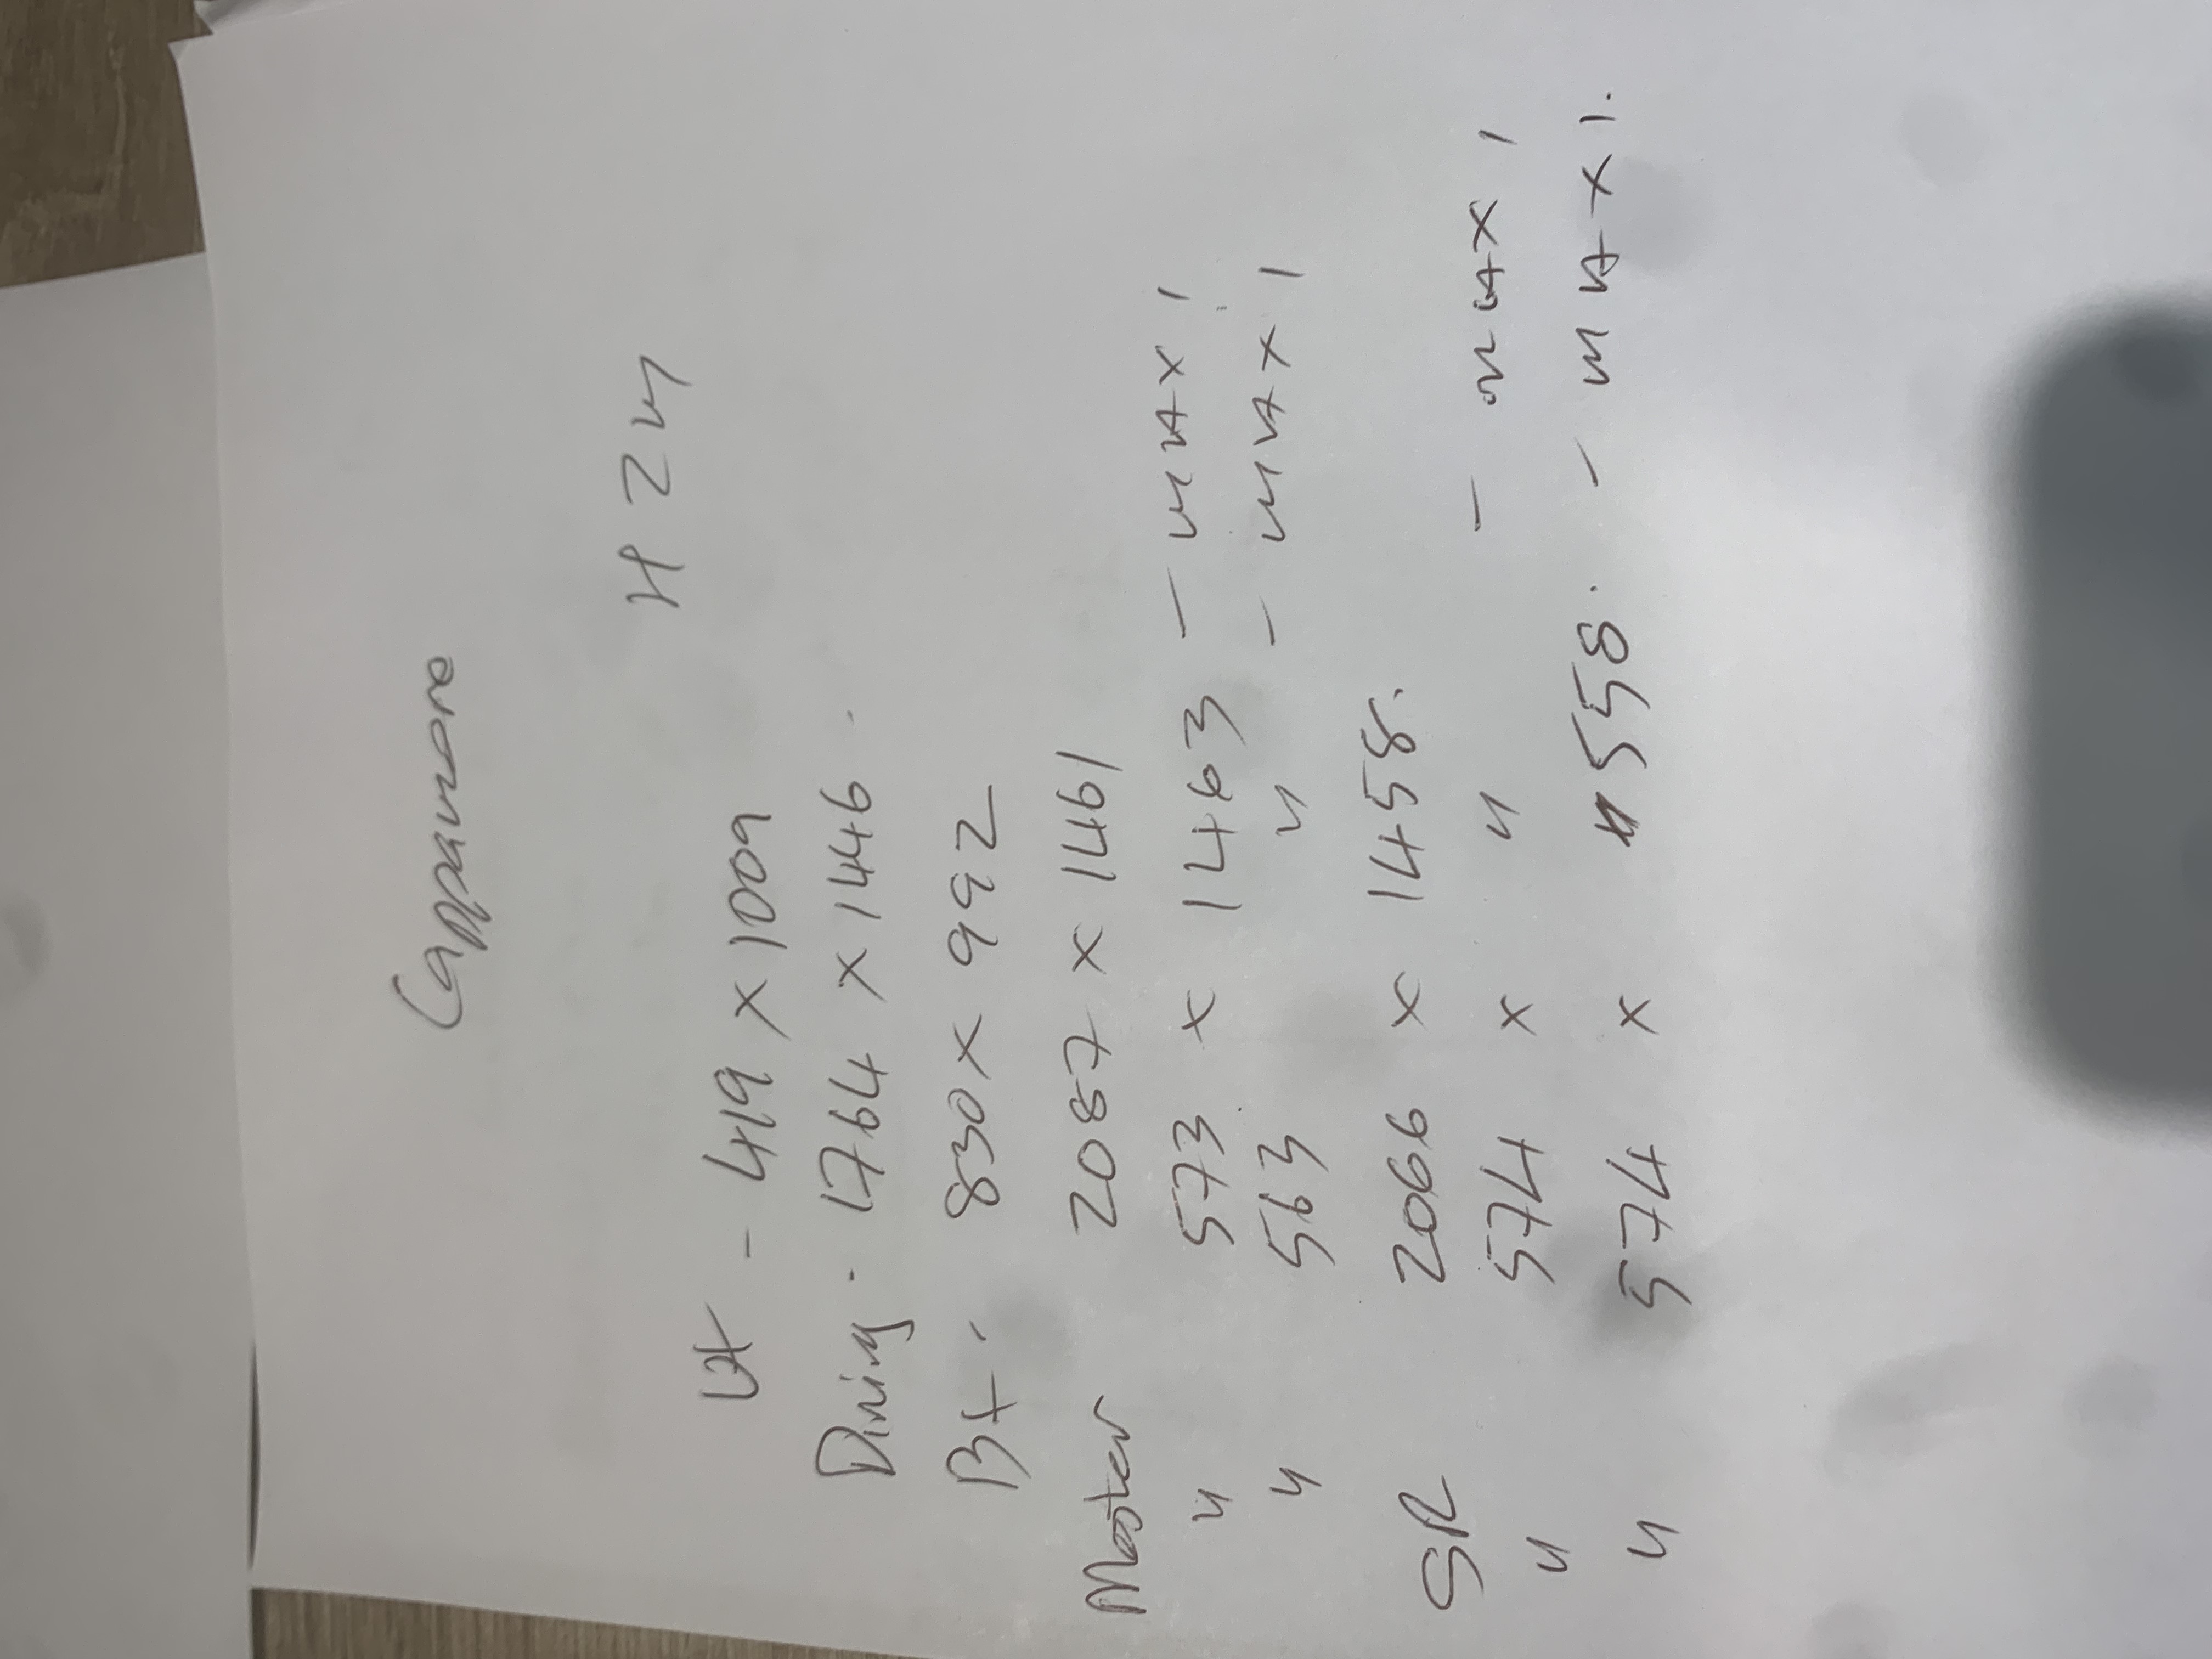 Cappamore
H 2 M
Ut - 419 x 1009
Dining - 1764 x 1446
Bt - 830 x 992
Master 2087 x 1461
" 573 x 1463 - max 1
" 563 " - max 1
SR 2066 x 1458.
" 574 x " - max 1
" 574 x 558. - max 1.